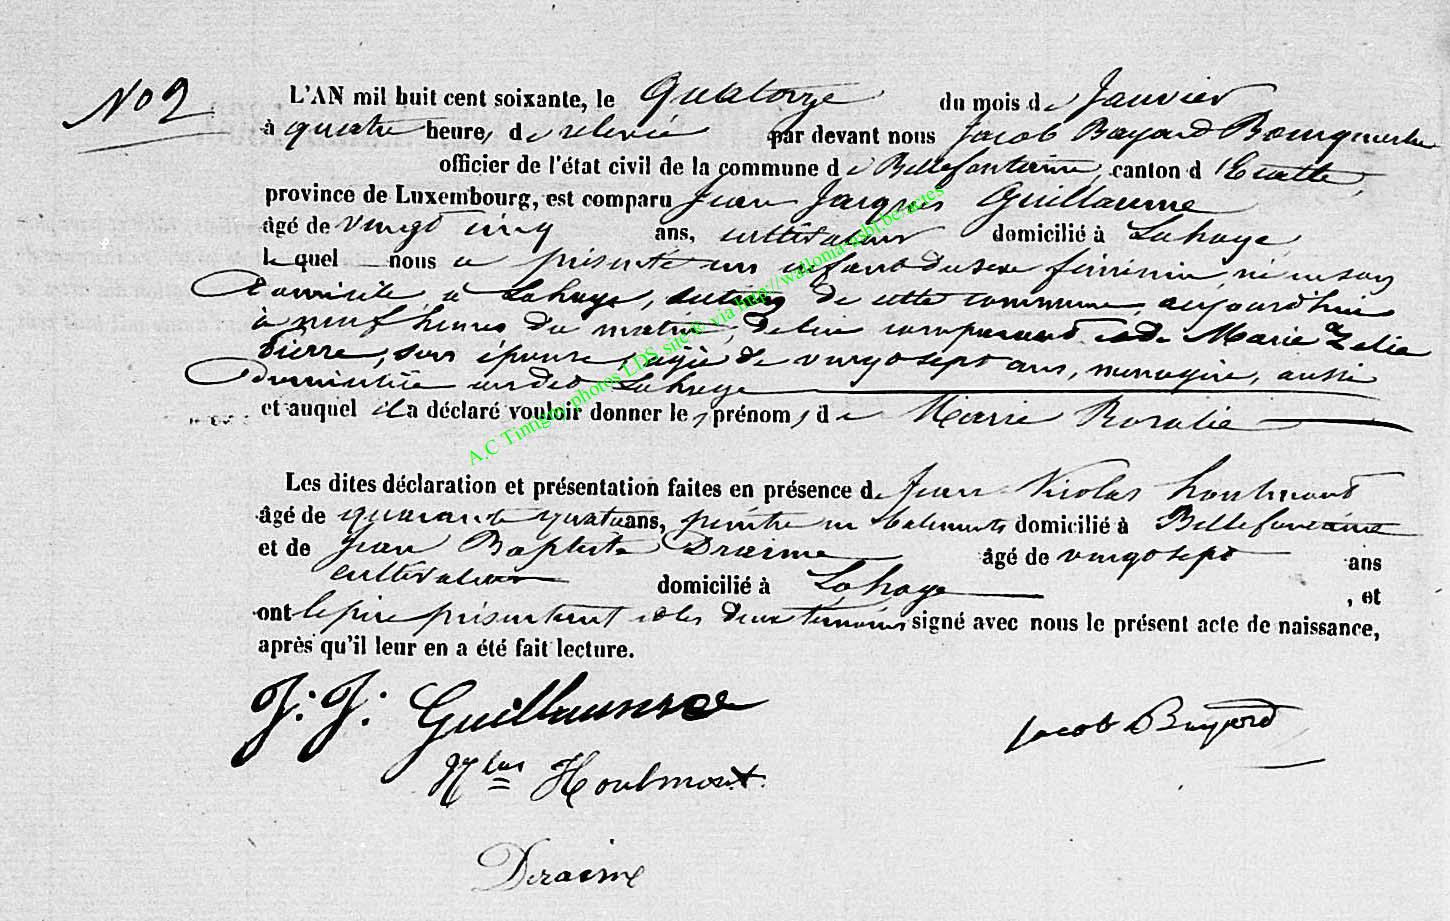 No 2
L'AN mil huit cent soixante, le Quatorze du mois de Janvier
à quatre heures de relevée par devant nous Jacob Bayard Bourgmestre
officier de l'état civil de la commune de Bellefontaine, canton d'Etalle,
province de Luxembourg, est comparu Jean Jacques Guillaume
âgé de vingt cinq ans, cultivateur domicilié à Lahage,
lequel nous a présenté un enfant du sexe féminin, né en son
domicile, à Lahage, section de cette commune, aujourd'hui
à neuf heures du matin, de lui comparant et de Marie Zelie
Pierre, son épouse, agée de vingt sept ans, menagère, aussi
domiciliée audit Lahage
et auquel il a déclaré vouloir donner les prénoms de Marie Rosalie
Les dites déclaration et présentation faites en présence de Jean Nicolas Houlmont
âgé de quarante quatre ans, peintre en batiments domicilié à Bellefontaine
et de Jean Baptiste Draime âgé de vingt sept ans
cultivateur domicilié à Lahage, et
ont le père présentant et les deux témoins signé avec nous le présent acte de naissance,
après qu'il leur en a été fait lecture.
J: J: Guillaume
Jacob Bayard
Nlas Houlmont.
Deraime
A.C Tintigny photos LDS site @ via http://wallonia-asbl.be/actes